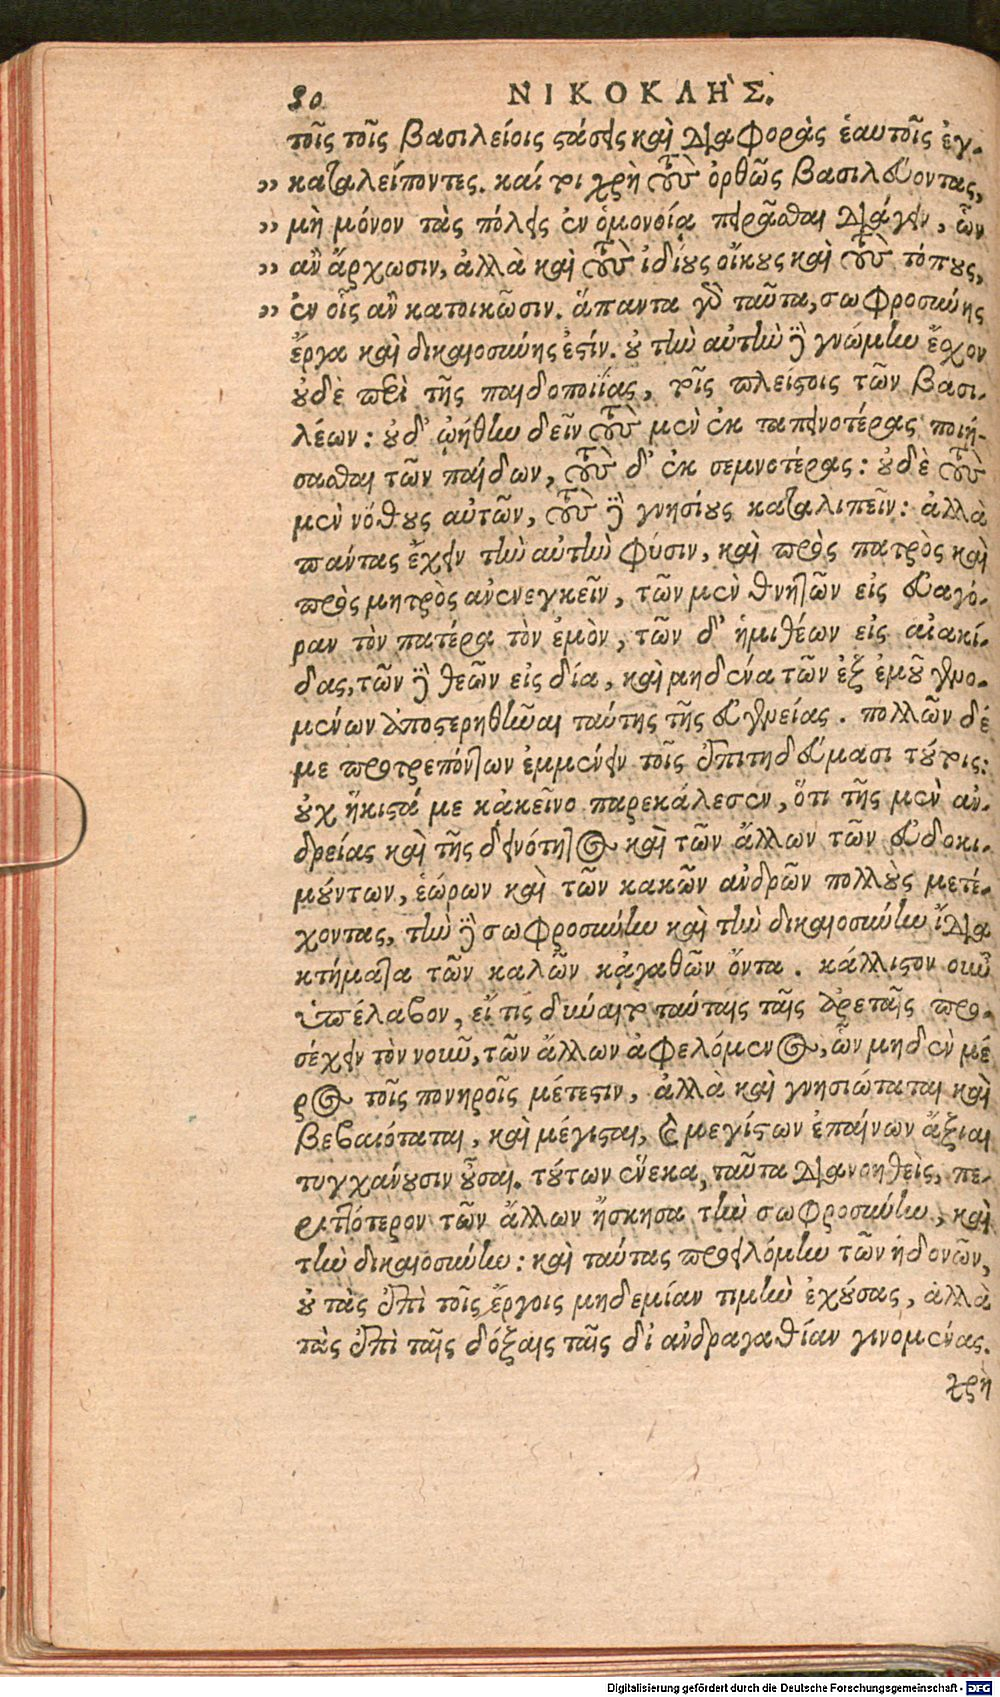 80 ΝΙΚΟΚΛΗ῎Σ.
τοῖς τοῖς βασιλείοις στάσεις καὶ διαφορὰς ἑαυτοῖς ἐγ-
„ καταλείποντες. καί τοι χρὴ τοὺς ὀρθῶς βασιλεύοντας,
„ μὴ μόνον τὰς πόλεις ἐν ὁμονοίᾳ πειρᾶσθαι διάγειν, ὧν
„ ἂν ἄρχωσιν, ἀλλὰ καὶ τοὺς ἰδίους οἴκους καὶ τοὺς τόπους,
„ ἐν οἷς ἂν κατοικῶσιν. ἅπαντα γὰρ ταῦτα, σωφροσύνης
ἔργα καὶ δικαιοσύνης ἐστίν. οὐ τὴν αὐτὴν δὲ γνώμην ἔσχον
οὐδὲ περὶ τῆς παιδοποιΐας, τοῖς πλείστοις τῶν βασι-
λέων: οὐδ' ᾠήθην δεῖν τοὺς μὲν ἐκ ταπεινοτέρας ποιή-
σασθαι τῶν παίδων, τοὺς δ' ἐκ σεμνοτέρας: οὐδὲ τοὺς
μὲν νόθους αὐτῶν, τοὺς δὲ γνησίους καταλιπεῖν: ἀλλὰ
πάντας ἔχειν τὴν αὐτὴν φύσιν, καὶ πρὸς πατρὸς καὶ
πρὸς μητρὸς ἀνενεγκεῖν, τῶν μὲν θνητῶν εἰς εὐαγό-
ραν τὸν πατέρα τὸν ἐμὸν, τῶν δ' ἡμιθέων εἰς αἰακί-
δας, τῶν δὲ θεῶν εἰς δία, καὶ μηδένα τῶν ἐξ ἐμοῦ γενο-
μένων ἀποστερηθῆναι ταύτης τῆς εὐγενείας. πολλῶν δέ
με προτρεπόντων ἐμμένειν τοῖς ἐπιτηδεύμασι τούτοις:
οὐχ ἥκιστά με κᾀκεῖνο παρεκάλεσεν, ὅτι τῆς μὲν ἀν-
δρείας καὶ τῆς δεινότητος καὶ τῶν ἄλλων τῶν εὐδοκι-
μούντων, ἑώρων καὶ τῶν κακῶν ἀνδρῶν πολλοὺς μετέ-
χοντας, τὴν δὲ σωφροσύνην καὶ τὴν δικαιοσύνην ἴδια
κτήματα τῶν καλῶν κᾀγαθῶν ὄντα. κάλλιστον οὖν
ὑπέλαβον, εἴ τις δύναιτο ταύταις ταῖς ἀρεταῖς προ-
σέχειν τὸν νοῦν, τῶν ἄλλων ἀφελόμενος, ὧν μηδὲν μέ
ρος τοῖς πονηροῖς μέτεστιν, ἀλλὰ καὶ γνησιώταται καὶ
βεβαιόταται, καὶ μέγισται, καὶ μεγίστων ἐπαίνων ἄξιαι
τυγχάνουσιν οὖσαι. τούτων ἕνεκα, ταῦτα διανοηθεὶς, πε-
ριττότερον τῶν ἄλλων ἤσκησα τὴν σωφροσύνην, καὶ
τὴν δικαιοσύνην: καὶ ταύτας προειλόμην τῶν ἡδονῶν,
οὐ τὰς ἐπὶ τοῖς ἔργοις μηδεμίαν τιμὴν ἐχούσας, ἀλλὰ
τὰς ἐπὶ ταῖς δόξαις ταῖς δι' ἀνδραγαθίαν γινομένας.
χρὴ
Digitalisierung gefördert durch die Deutsche Forschungsgemeinschaft - DFG